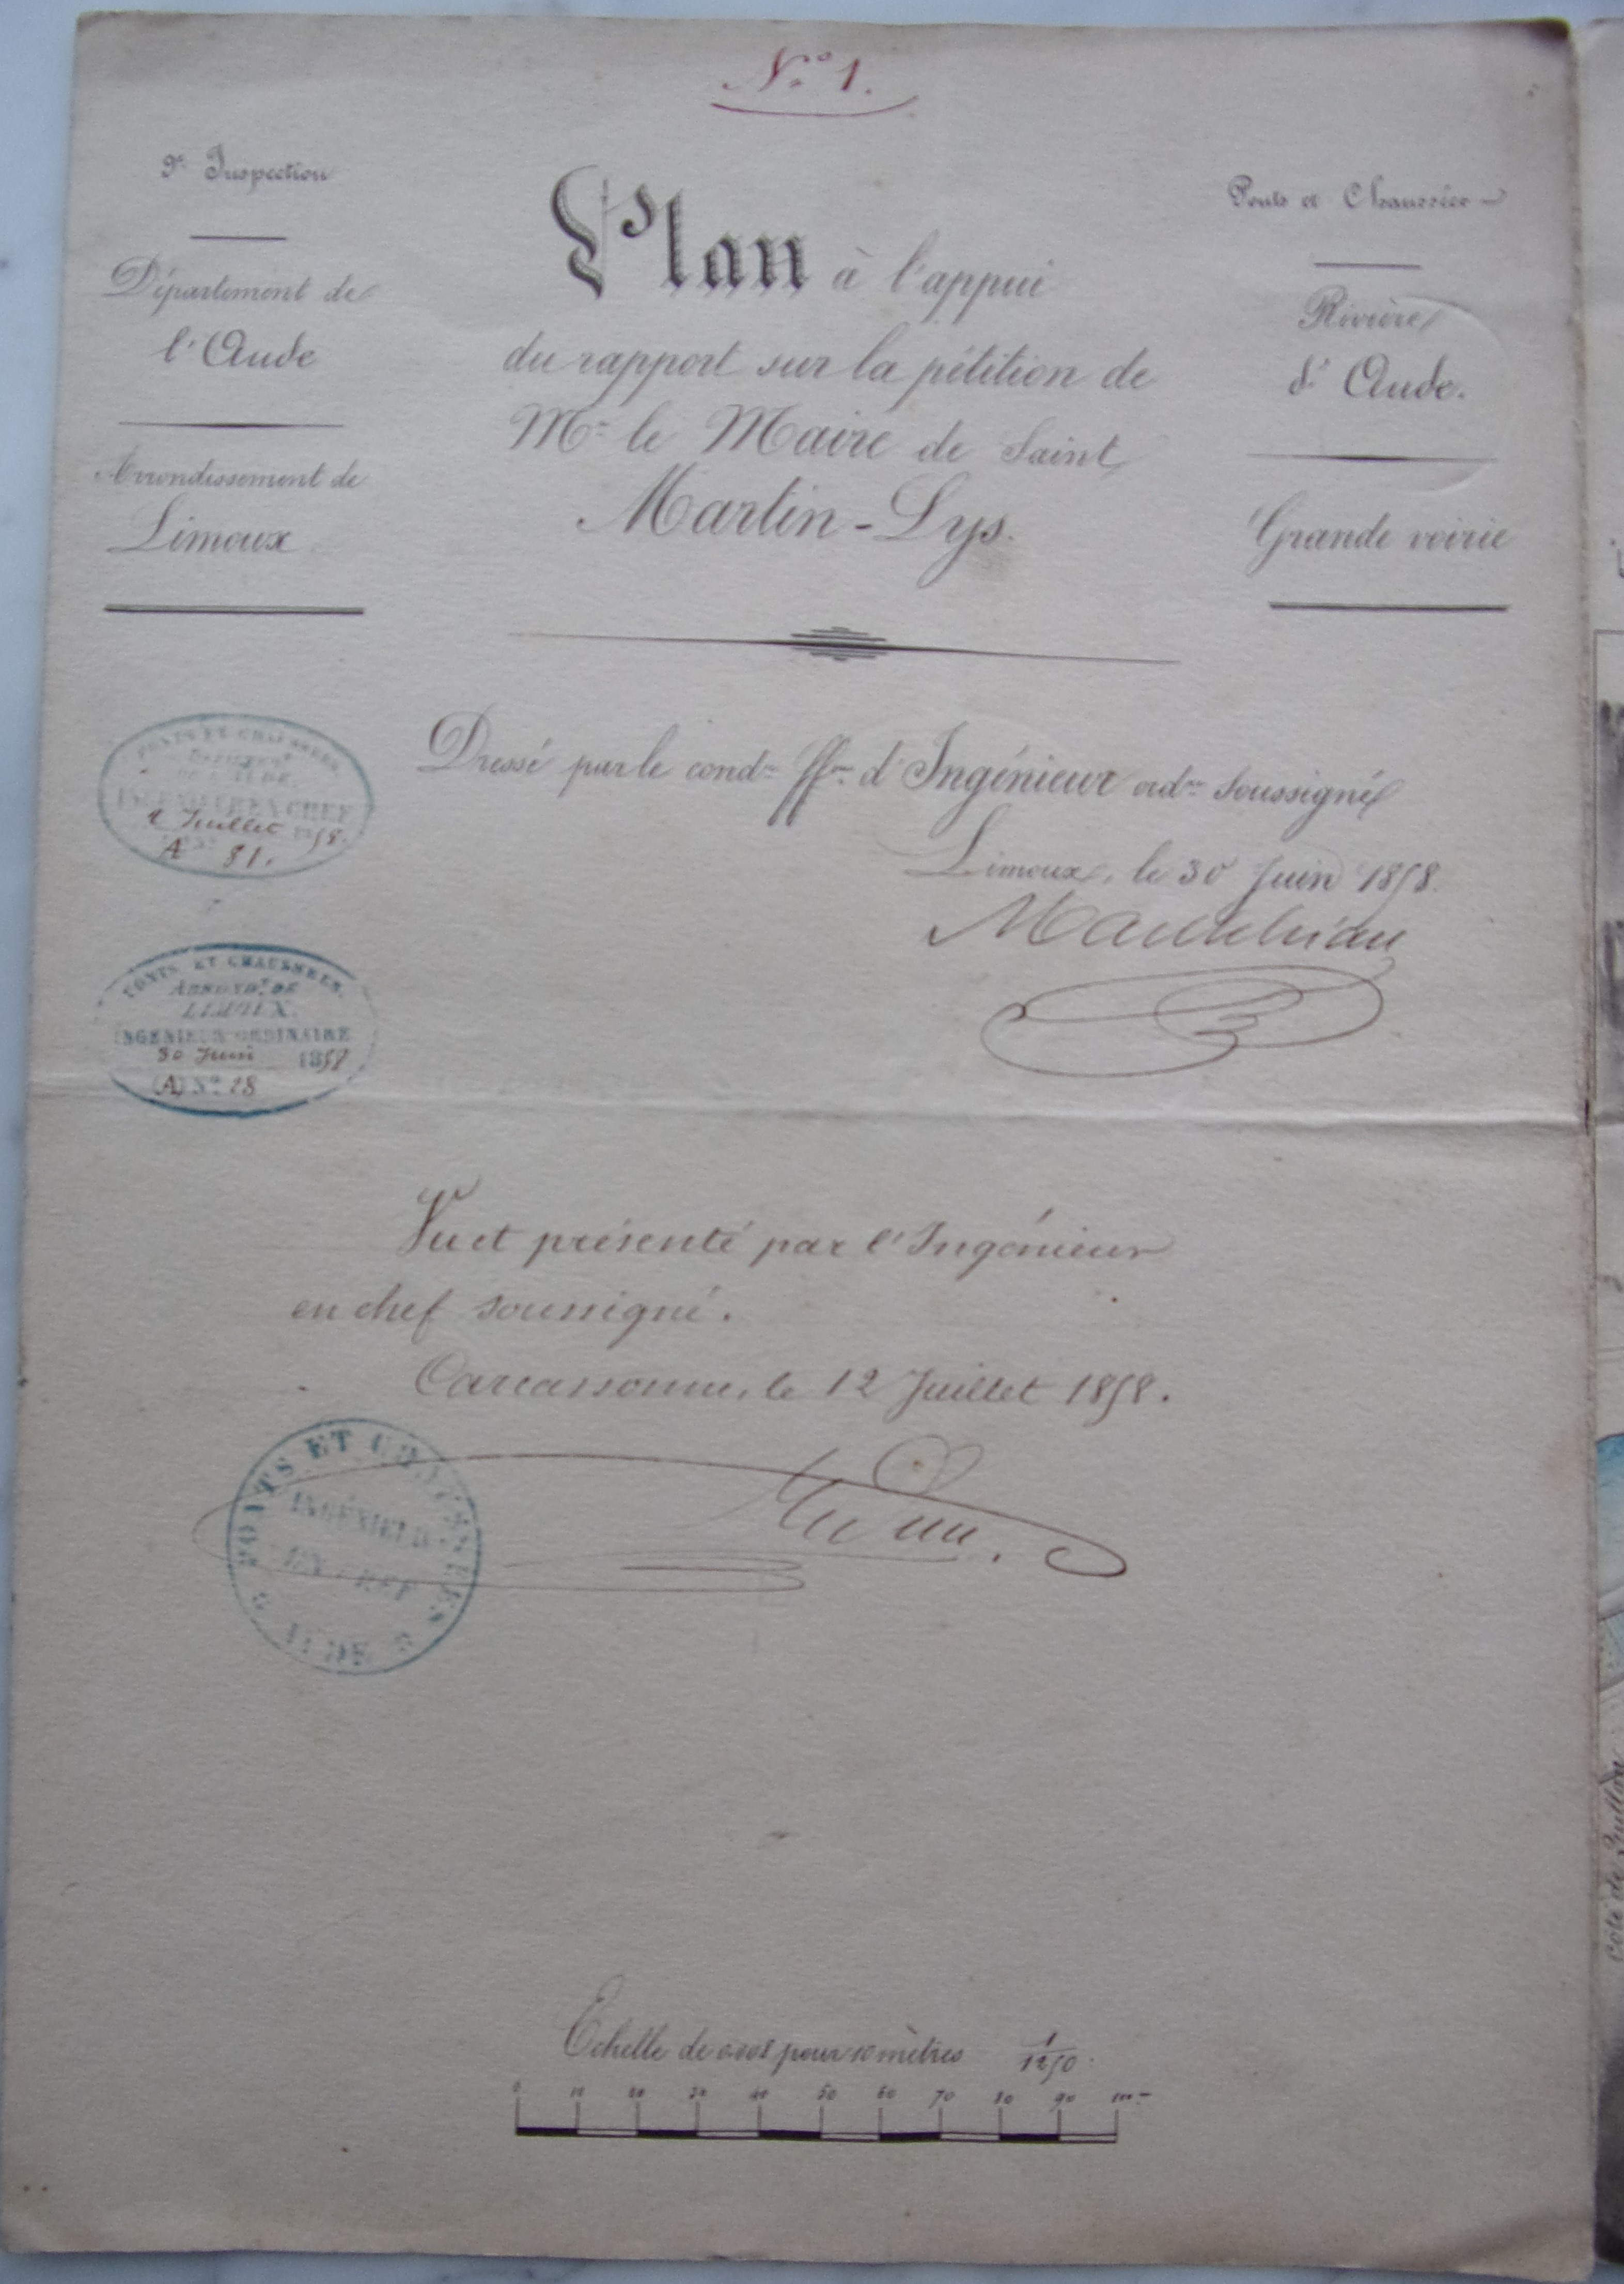 N.º 1.
9e Inspection
Département de
l'Aude
Arrondissement de
Limoux
Plan à l'appui
du rapport sur la pétition de
Mr le Maire de Saint
Martin-Lys.
Ponts et Chaussées
Rivière
d'Aude.
Grande voirie
PONTS ET CHAUSSÉES
DE L'AUDE.
INGÉNIEUR EN CHEF
Juillet 1858.
A No 81.
Dressé par le condr ffon d'Ingénieur ordre soussigné
Limoux, le 30 Juin 1858.
PONTS ET CHAUSSÉES.
ARRONDt DE
LIMOUX.
INGÉNIEUR ORDINAIRE
30 Juin 1858
(A) No 28
Vu et présenté par l'Ingénieur
en chef soussigné.
Carcassonne, le 12 Juillet 1858.
PONTS ET CHAUSSÉES
INGÉNIEUR
EN CHEF
AUDE
Echelle de 0.008 pour 10 mètres 1/1250.
0 10 20 30 40 50 60 70 80 90 100m
Côté de Quillan